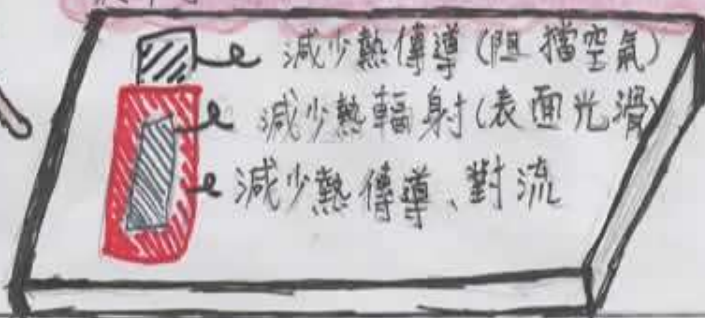 減少熱傳導(阻擋空氣)
減少熱輻射(表面光滑)
減少熱傳導、對流